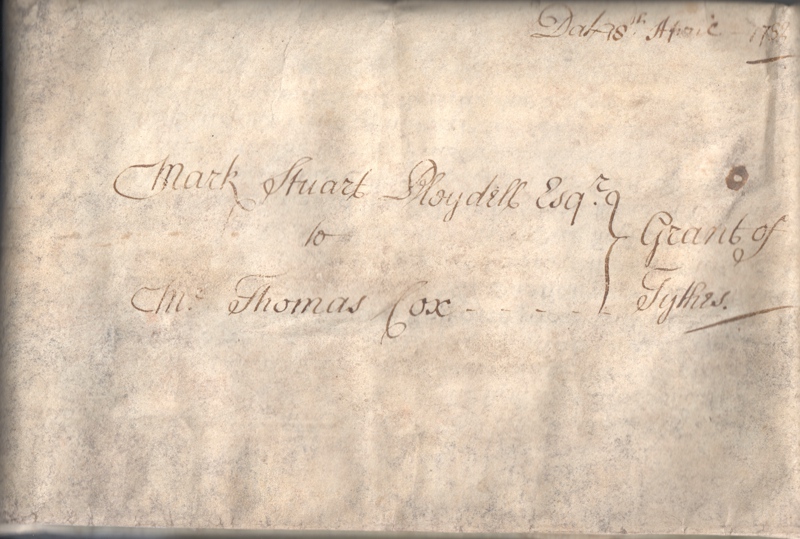 Dat. 28th April
Mark Stuart Pleydell Esqr.
to
Grant of
Mr. Thomas Cox - - - - -
Tythes.